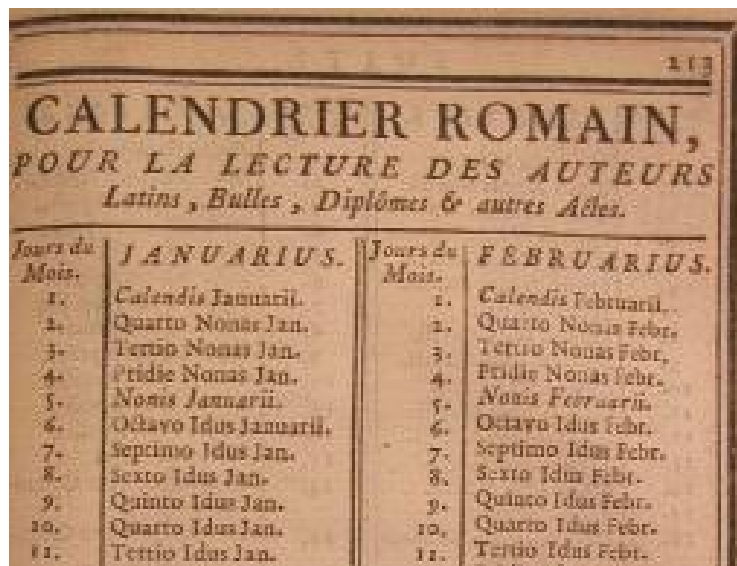 213
CALENDRIER ROMAIN,
POUR LA LECTURE DES AUTEURS
Latins, Bulles, Diplômes & autres Actes.
Jours du Mois. IANUARIUS. Jours du Mois. FEBRUARIUS.
1. Calendis Januarii. 1. Calendis Februarii.
2. Quarto Nonas Jan. 2. Quarto Nonas Febr.
3. Tertio Nonas Jan. 3. Tertio Nonas Febr.
4. Pridie Nonas Jan. 4. Pridie Nonas Febr.
5. Nonis Januarii. 5. Nonis Februarii.
6. Octavo Idus Januarii. 6. Octavo Idus Febr.
7. Septimo Idus Jan. 7. Septimo Idus Febr.
8. Sexto Idus Jan. 8. Sexto Idus Febr.
9. Quinto Idus Jan. 9. Quinto Idus Febr.
10. Quarto Idus Jan. 10. Quarto Idus Febr.
11. Tertio Idus Jan. 11. Tertio Idus Febr.